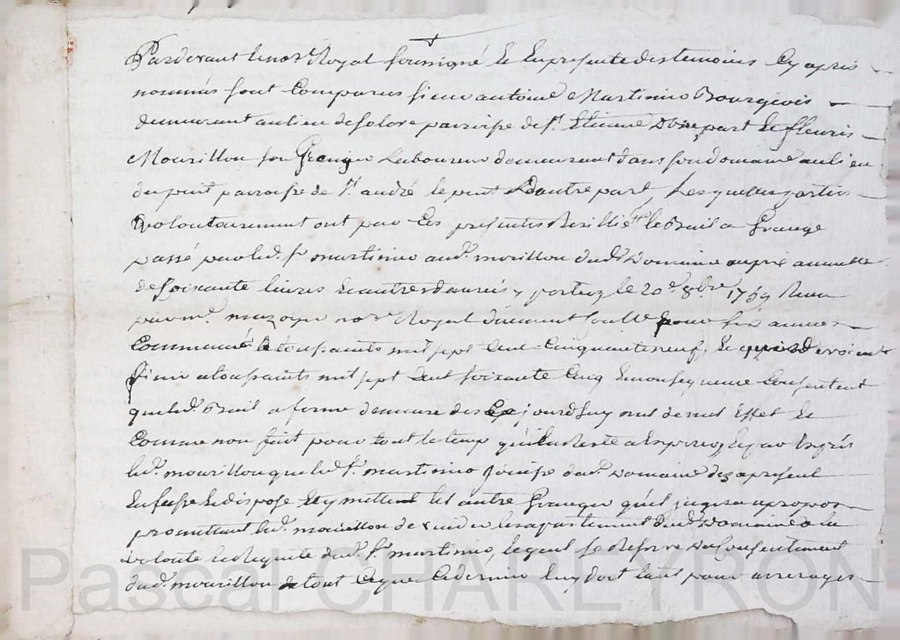 Pardevant le nore Royal soussigné et en presence des temoins Cy apres
nommés sont Comparus sieur antoine Martinier Bourgeois
demeurant au lieu de paroisse de st Etienne D'une part et fleuris
Mourillou son Granger Laboureur demeurant dans son domaine au lieu
du puit paroisse de st andré le puit D'autre part, Lesquelles parties
volontairement ont par Ces presentes Resillié le Bail a Grange
passé par led. sr martinier aud. mourillou dud. Domaine au prix annuelle
de soixante livres et autres y portuz le 20e 8bre 1759 Reçu
par me nore Royal pour six années
Commencé a toussaints mil sept Cent Cinquante neuf, et
finir a toussaints mil sept Cent soixante Cinq En consequence Consentent
que led. Bail a ferme demeure des Ce jourd'huy nul de nul Effet et
Comme non fait pour tout le temp qu'il reste a
led. mourillou que led. sr martinier jouisse dud. Domaine dez apresent
En fasse et dispose Et y mettent tel autre Granger qu'il jugera apropos
promettant led. mourillou de vuider les apartement dud. Domaine a la
volonté et Requite dud. sr martinier, lequel se Reserve du Consentement
dud. mourillou tout Ce que Ce dernier luy doit tant pour arrerages
Pascal CHAREYRON